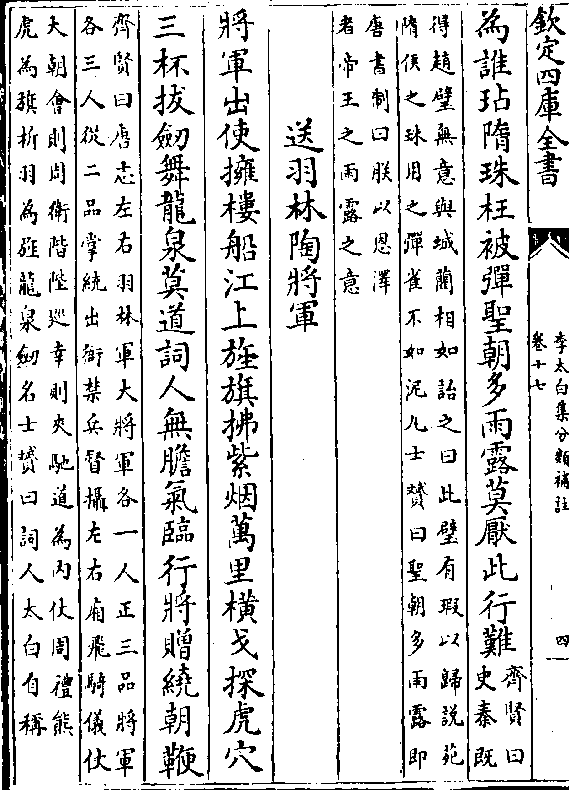 欽定四庫全書
李太白集分類補註
卷十七
四
為誰玷隋珠枉被彈聖朝多雨露莫厭此行難
齊賢曰
史秦既
得趙璧無意與城藺相如詒之曰此璧有瑕以歸說苑
隋侯之珠用之彈雀不如泥丸士贇曰聖朝多雨露即
唐書制曰朕以恩澤
者帝王之雨露之意
送羽林陶將軍
將軍出使擁樓船江上旌旗拂紫烟萬里橫戈探虎穴
三杯拔劒舞龍泉莫道詞人無膽氣臨行將贈繞朝鞭
齊賢曰唐志左右羽林軍大將軍各一人正三品將軍
各三人從二品掌統出衙禁兵督攝左右廂飛騎儀仗
大朝會則周衛階陛廵幸則夾馳道為内仗周禮熊
虎為旗析羽為旌龍泉劒名士贇曰詞人太白自稱